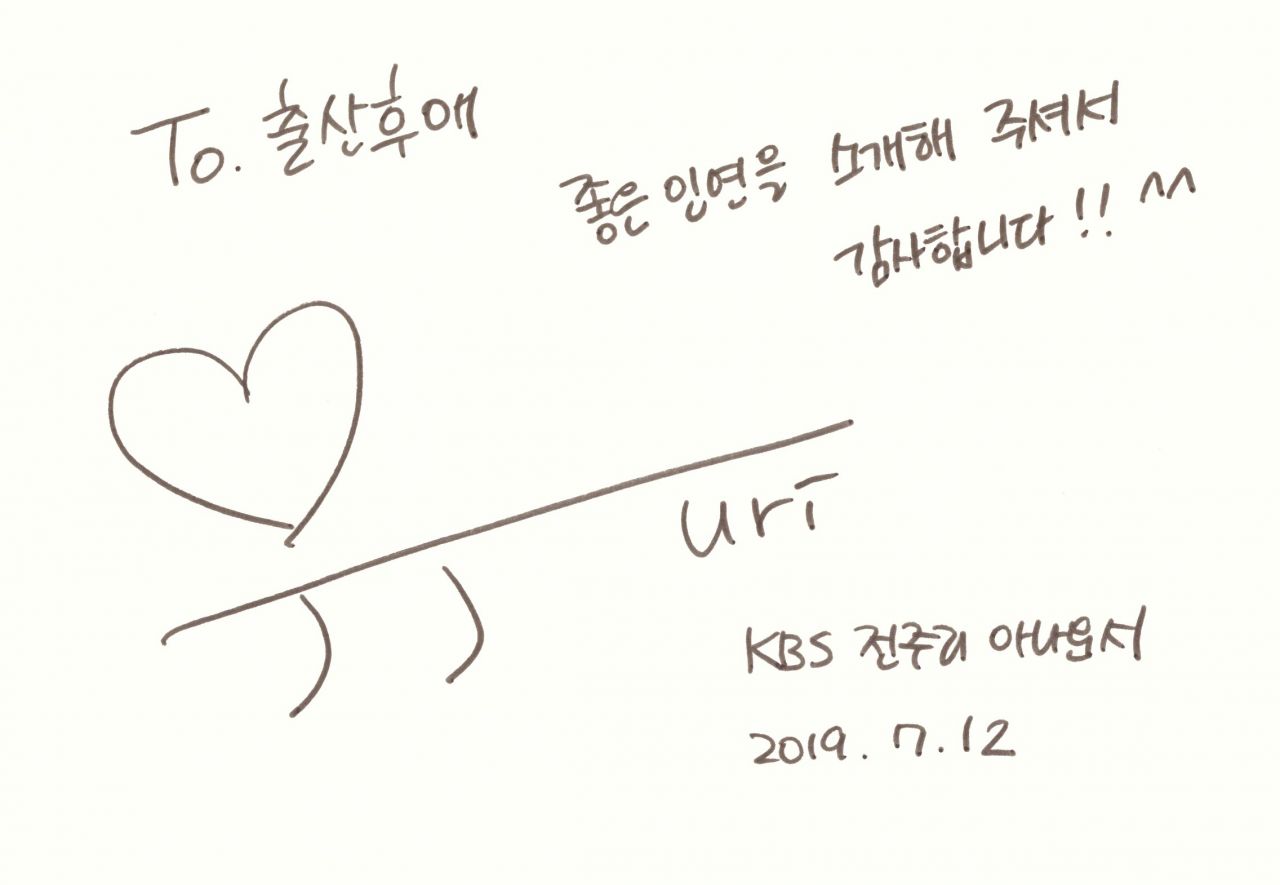 To. 출산후애
좋은 인연을 소개해 주셔서
감사합니다!! ^^
uri
KBS 전주리 아나운서
2019. 7. 12